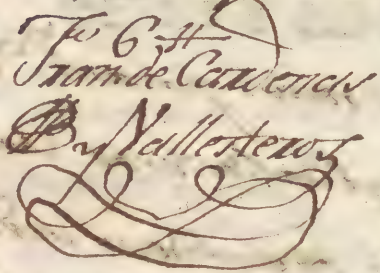 Juan de Cardenas
y Vallesteros